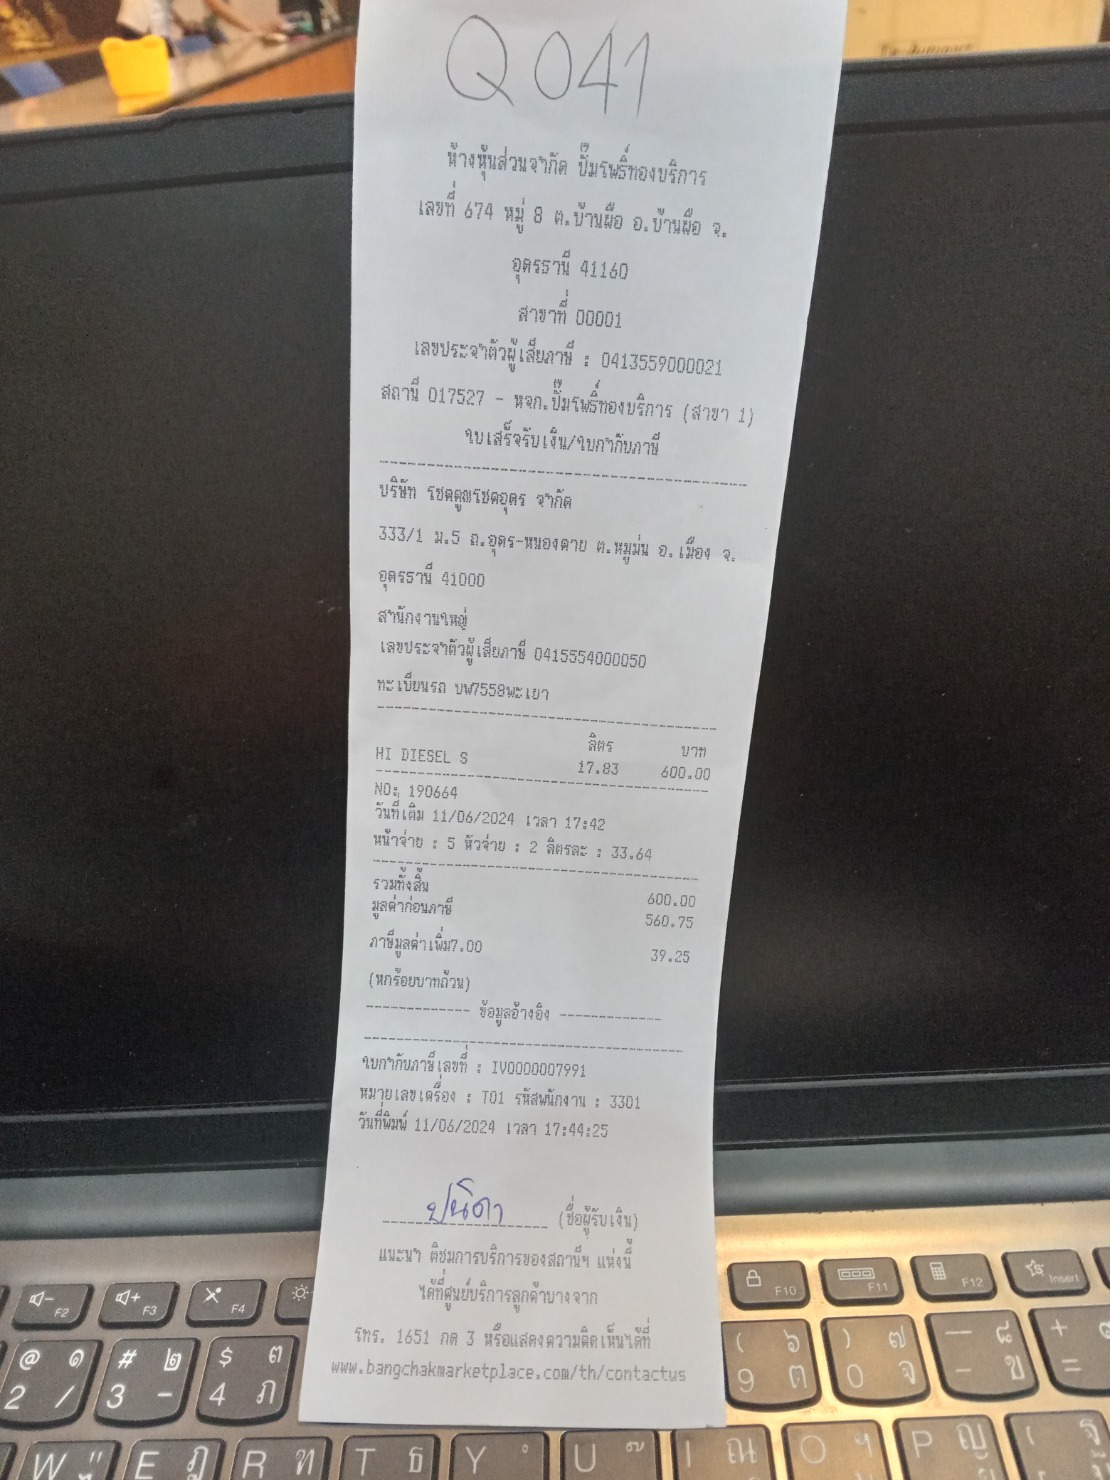 Q 041
ห้างหุ้นส่วนจำกัด ปั๊มโพธิ์ทองบริการ
เลขที่ 674 หมู่ 8 ต.บ้านผือ อ.บ้านผือ จ.
อุดรธานี 41160
สาขาที่ 00001
เลขประจำตัวผู้เสียภาษี : 0413559000021
สถานี 017527 - หจก.ปั๊มโพธิ์ทองบริการ (สาขา 1)
ใบเสร็จรับเงิน/ใบกำกับภาษี
บริษัท โชคคูณโชคอุดร จำกัด
333/1 ม.5 ถ.อุดร-หนองคาย ต.หมูม่น อ.เมือง จ.
อุดรธานี 41000
สำนักงานใหญ่
เลขประจำตัวผู้เสียภาษี 0415554000050
ทะเบียนรถ บพ7558พะเยา
ลิตร บาท
HI DIESEL S 17.83 600.00
NO: 190664
วันที่เติม 11/06/2024 เวลา 17:42
หน้าจ่าย : 5 หัวจ่าย : 2 ลิตรละ : 33.64
รวมทั้งสิ้น 600.00
มูลค่าก่อนภาษี 560.75
ภาษีมูลค่าเพิ่ม7.00 39.25
(หกร้อยบาทถ้วน)
------------- ข้อมูลอ้างอิง -------------
ใบกำกับภาษีเลขที่ : IV0000007991
หมายเลขเครื่อง : T01 รหัสพนักงาน : 3301
วันที่พิมพ์ 11/06/2024 เวลา 17:44:25
ปนิดา (ชื่อผู้รับเงิน)
แนะนำ ติชมการบริการของสถานีฯ แห่งนี้
ได้ที่ศูนย์บริการลูกค้าบางจาก
โทร. 1651 กด 3 หรือแสดงความคิดเห็นได้ที่
www.bangchakmarketplace.com/th/contactus
F2 F3 F4 F10 F11 F12 Insert
@ ๑ # ๒ $ ๓ ( ๖ ) ๗ — ๘ +
2 / 3 - 4 ภ 9 ต 0 จ - ข =
W " E ฎ R ฑ T ธ Y ํ U ๊ I ณ O ฯ P ญ ฐ